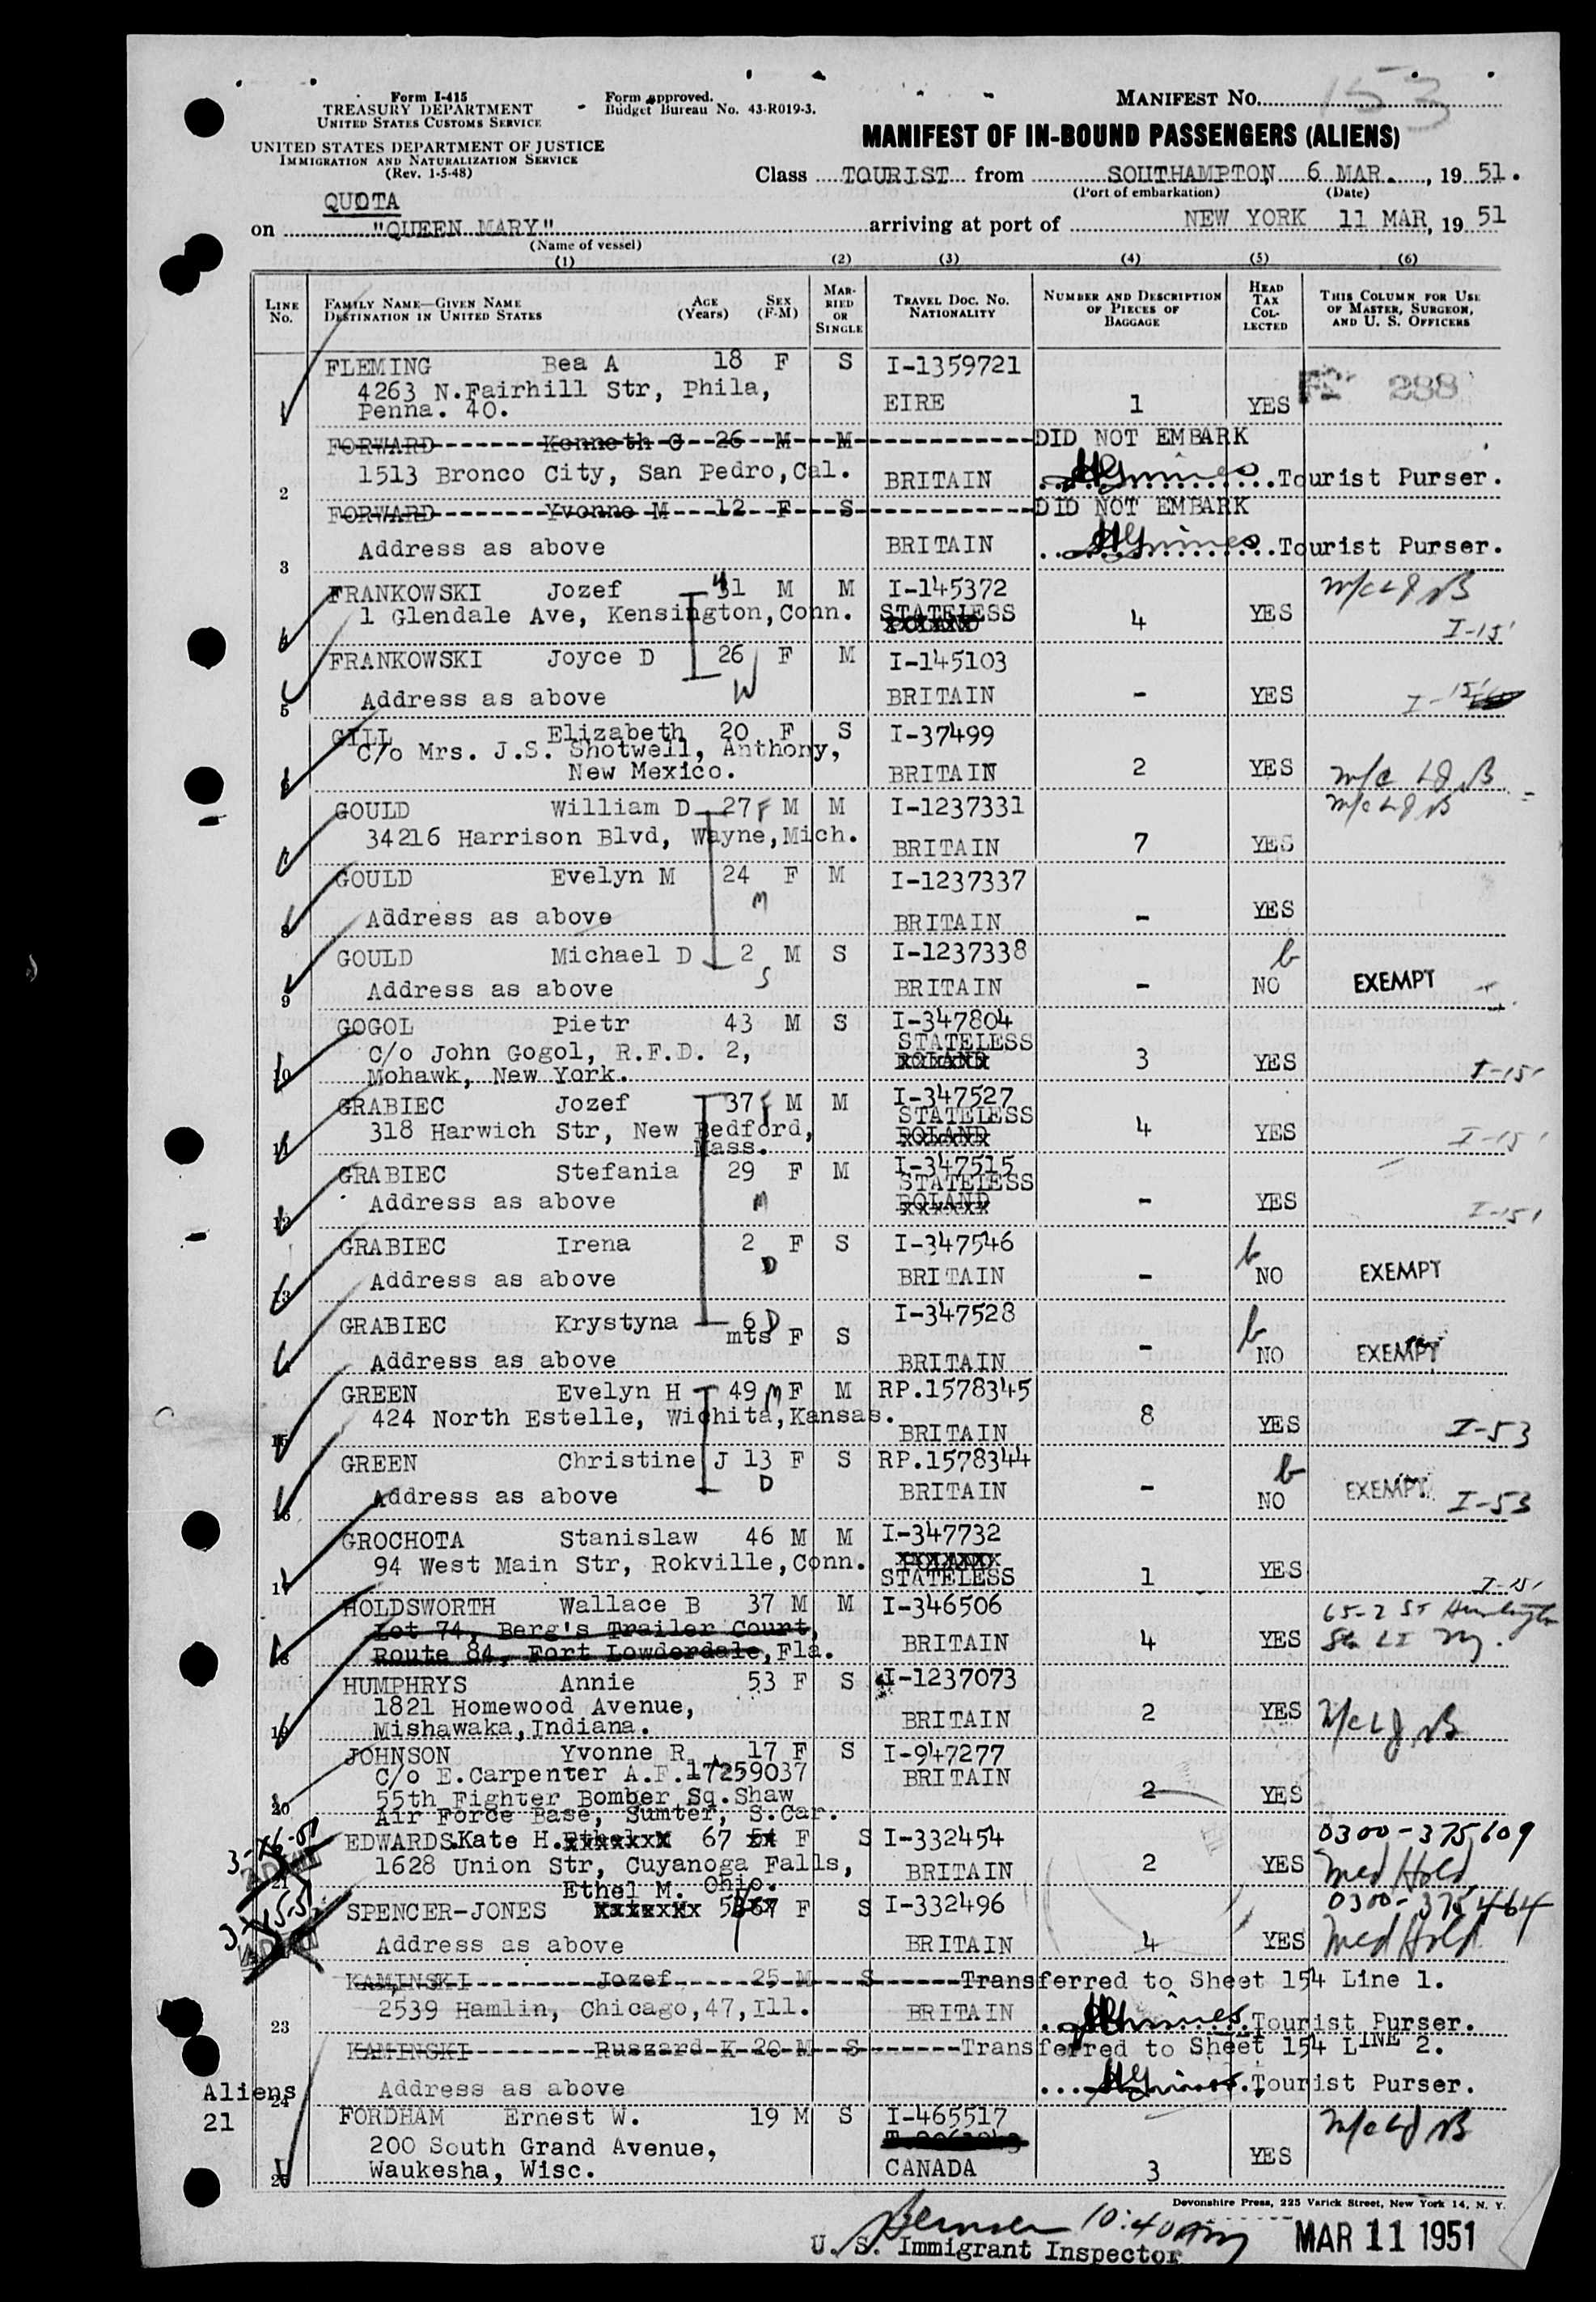 Form I-415
TREASURY DEPARTMENT
UNITED STATES CUSTOMS SERVICE
UNITED STATES DEPARTMENT OF JUSTICE
IMMIGRATION AND NATURALIZATION SERVICE
(Rev. 1-5-48)
Form approved.
Budget Bureau No. 43-R019-3.
MANIFEST NO. 153
MANIFEST OF IN-BOUND PASSENGERS (ALIENS)
Class TOURIST from SOUTHAMPTON, 6 MAR., 19 51.
(Port of embarkation) (Date)
QUOTA
on "QUEEN MARY" arriving at port of NEW YORK 11 MAR, 19 51
(Name of vessel)
(1) (2) (3) (4) (5) (6)
LINE No. FAMILY NAME—GIVEN NAME DESTINATION IN UNITED STATES AGE (Years) SEX (F-M) MARRIED OR SINGLE TRAVEL DOC. NO. NATIONALITY NUMBER AND DESCRIPTION OF PIECES OF BAGGAGE HEAD TAX COLLECTED THIS COLUMN FOR USE OF MASTER, SURGEON, AND U. S. OFFICERS
FLEMING Bea A 18 F S I-1359721
4263 N.Fairhill Str, Phila,
Penna. 40. EIRE 1 YES 288
FORWARD Kenneth G 26 M M DID NOT EMBARK
1513 Bronco City, San Pedro,Cal. BRITAIN Tourist Purser.
2
FORWARD Yvonne M 12 F S DID NOT EMBARK
Address as above BRITAIN Tourist Purser.
3
FRANKOWSKI Jozef 31 M M I-145372
1 Glendale Ave, Kensington,Conn. STATELESS POLAND 4 YES I-151
4
FRANKOWSKI Joyce D 26 F M I-145103
W
5 Address as above BRITAIN - YES I-151
GILL Elizabeth 20 F S I-37499
C/o Mrs. J.S. Shotwell, Anthony,
6 New Mexico. BRITAIN 2 YES
GOULD William D 27 F M M I-1237331
34216 Harrison Blvd, Wayne,Mich. BRITAIN 7 YES
7
GOULD Evelyn M 24 F M I-1237337
M
8 Address as above BRITAIN - YES
GOULD Michael D 2 M S I-1237338
S
9 Address as above BRITAIN - NO EXEMPT
GOGOL Pietr 43 M S I-347804
C/o John Gogol, R.F.D. 2, STATELESS POLAND 3 YES I-151
10 Mohawk, New York.
GRABIEC Jozef 37 F M M I-347527
318 Harwich Str, New Bedford, STATELESS POLAND 4 YES I-151
11 Mass.
GRABIEC Stefania 29 F M I-347515
M STATELESS
12 Address as above POLAND - YES I-151
GRABIEC Irena 2 F S I-347546
D
13 Address as above BRITAIN - NO EXEMPT
GRABIEC Krystyna 6 D mts F S I-347528
Address as above BRITAIN - NO EXEMPT
GREEN Evelyn H 49 M F M RP.1578345
424 North Estelle, Wichita,Kansas. BRITAIN 8 YES I-53
15
GREEN Christine J 13 F S RP.1578344
D
16 Address as above BRITAIN - NO EXEMPT I-53
GROCHOTA Stanislaw 46 M M I-347732
94 West Main Str, Rokville,Conn. STATELESS 1 YES I-151
17
HOLDSWORTH Wallace B 37 M M I-346506
Lot 74, Berg's Trailer Court, 65-2 St Huntington
18 Route 84, Fort Lowderdale, Fla. BRITAIN 4 YES Sta LI NY.
HUMPHRYS Annie 53 F S I-1237073
1821 Homewood Avenue,
19 Mishawaka,Indiana. BRITAIN 2 YES
JOHNSON Yvonne R. 17 F S I-947277
C/o E.Carpenter A.F.17259037 BRITAIN
55th Fighter Bomber Sq.Shaw 2 YES
20 Air Force Base, Sumter, S.Car.
EDWARDS.Kate H. 67 F S I-332454 0300-375609
1628 Union Str, Cuyanoga Falls, BRITAIN 2 YES Med Hold
21 Ohio.
Ethel M.
SPENCER-JONES F S I-332496 0300-375464
Address as above BRITAIN 4 YES Med Hold
KAMINSKI Jozef 25 M S Transferred to Sheet 154 Line 1.
2539 Hamlin, Chicago,47,Ill. BRITAIN Tourist Purser.
23
KAMINSKI Ruszard K 20 M S Transferred to Sheet 154 LINE 2.
24 Address as above Tourist Purser.
Aliens
21
FORDHAM Ernest W. 19 M S I-465517
200 South Grand Avenue,
25 Waukesha, Wisc. CANADA 3 YES
Devonshire Press, 225 Varick Street, New York 14, N. Y.
10:40 AM
U. S. Immigrant Inspector
MAR 11 1951